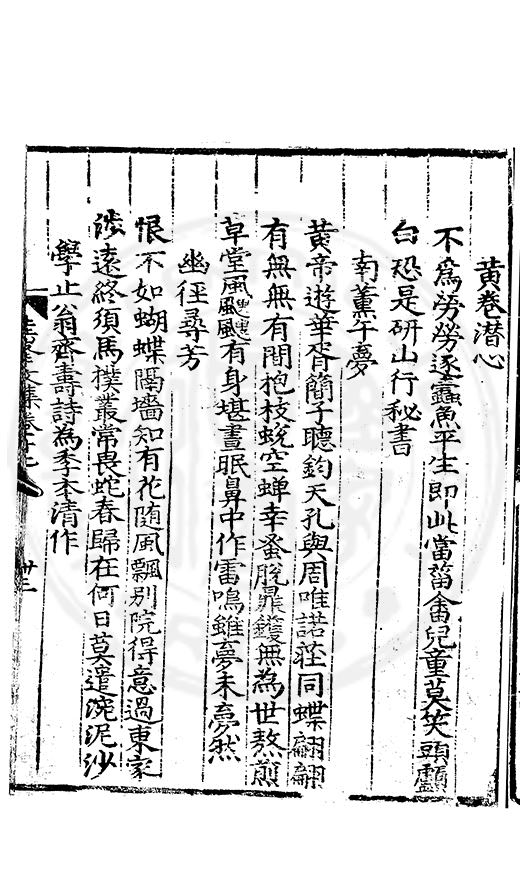 黄卷潜心
不爲勞勞逐蠹魚平生即此當菑畬兒童莫笑頭顱
白恐是研山行秘書
南薰午夢
黄帝遊華胥簡子聽鈞天孔與周唯諾莊同蝶翩翩
有無無有間抱枝蛻空蟬幸蚤脫鼎鑊無為世熬煎
草堂風颼颼有身堪晝眠鼻中作雷鳴雖夢未夢然
幽徑尋芳
恨不如蝴蝶隔墻知有花随風飄别院得意過東家
渉遠終須馬撲叢常畏蛇春歸在何日莫遣涴泥沙
學止翁齊壽詩為季本清作
文集卷
卄三